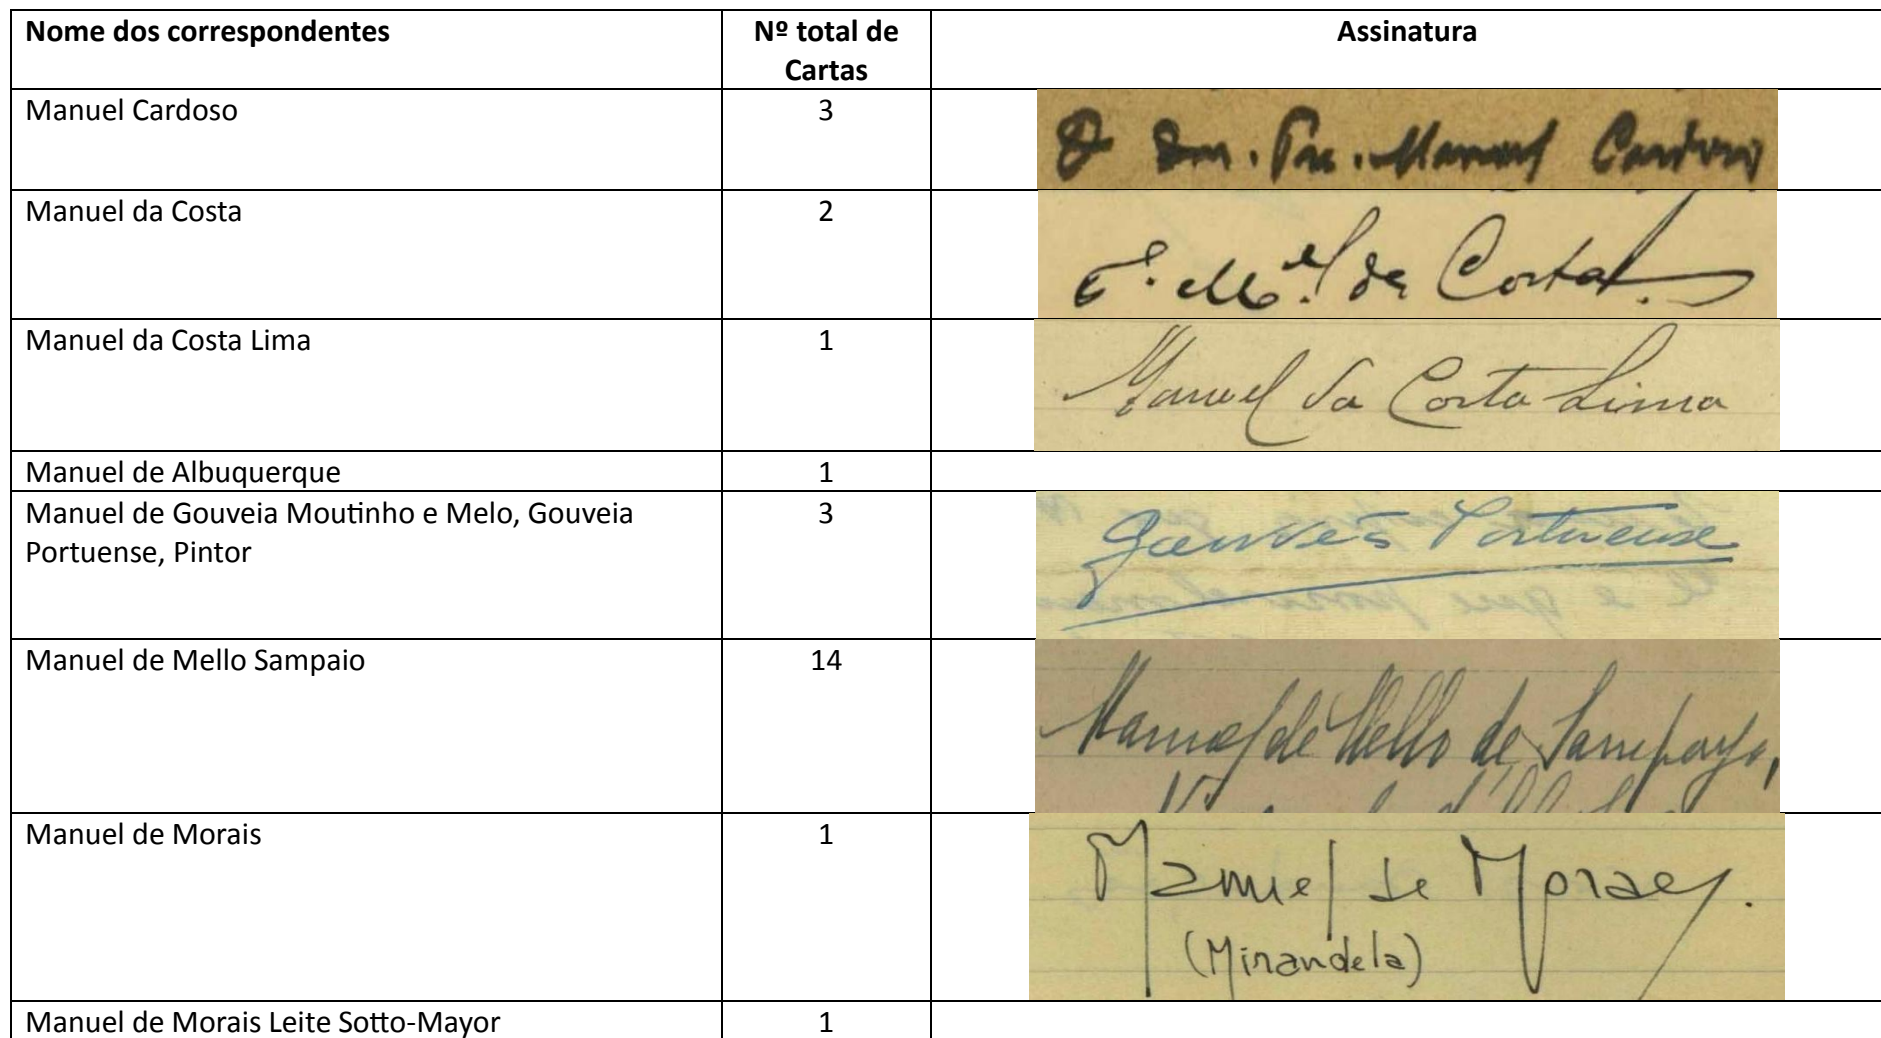 Nome dos correspondentes Nº total de Cartas Assinatura
Manuel Cardoso 3 Manuel Cardoso
Manuel da Costa 2 P. Mel da Costa
Manuel da Costa Lima 1 Manuel da Costa Lima
Manuel de Albuquerque 1
Manuel de Gouveia Moutinho e Melo, Gouveia Portuense, Pintor 3 Gouveia Portuense
Manuel de Mello Sampaio 14 Manuel de Mello de Sampayo,
Manuel de Morais 1 Manuel de Moraes.
(Mirandela)
Manuel de Morais Leite Sotto-Mayor 1